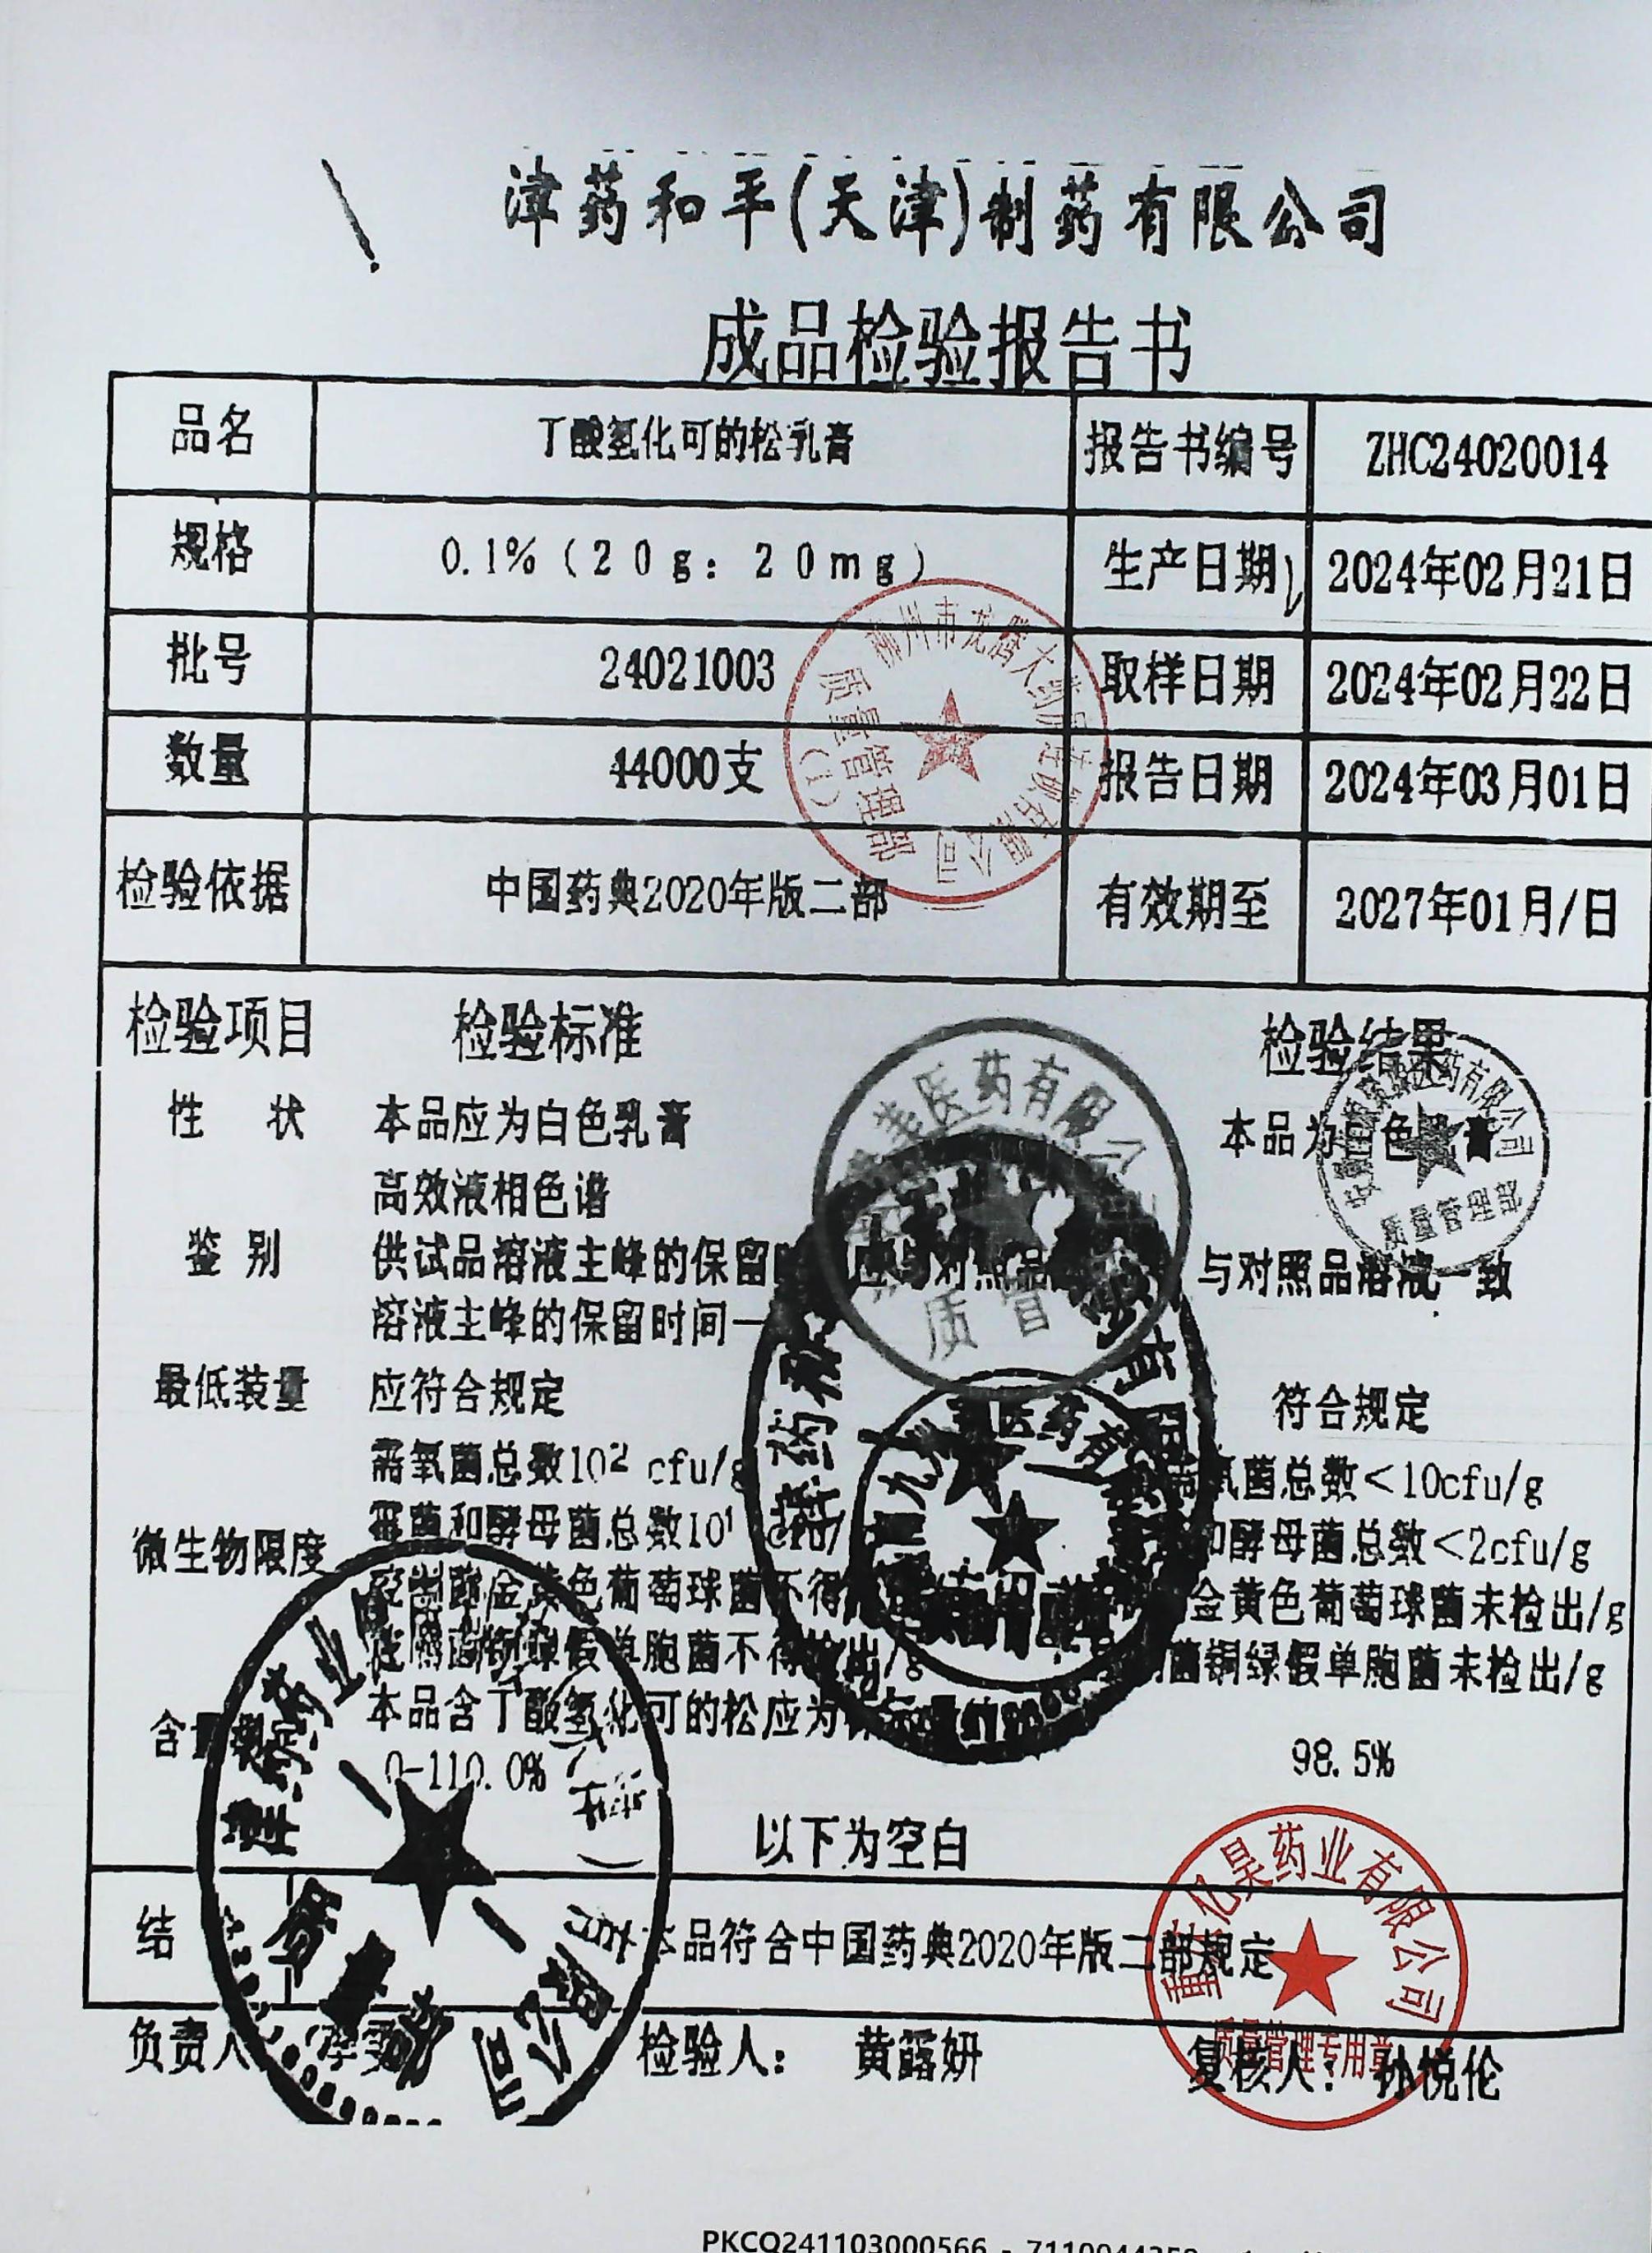 津药和平(天津)制药有限公司
成品检验报告书
品名 丁酸氢化可的松乳膏 报告书编号 ZHC24020014
规格 0.1%(20g:20mg) 生产日期 2024年02月21日
批号 24021003 取样日期 2024年02月22日
数量 44000支 报告日期 2024年03月01日
检验依据 中国药典2020年版二部 有效期至 2027年01月/日
检验项目 检验标准 检验结果
性 状 本品应为白色乳膏 本品为白色乳膏
高效液相色谱
鉴 别 供试品溶液主峰的保留 应与对照品 与对照品溶液一致
溶液主峰的保留时间一
最低装量 应符合规定 符合规定
需氧菌总数10² cfu/g 需氧菌总数<10cfu/g
霉菌和酵母菌总数10¹ cfu/ 和酵母菌总数<2cfu/g
微生物限度
金黄色葡萄球菌不得 金黄色葡萄球菌未检出/g
假单胞菌不得检出/g 菌铜绿假单胞菌未检出/g
本品含丁酸氢化可的松应为标示量的
含量 0-110.0% 98.5%
以下为空白
结 本品符合中国药典2020年版二部规定
负责人 检验人: 黄露妍 复核人: 孙悦伦
柳州市龙腾大药房连锁有限公司
质量管理部
(1)
医药有限公
质管
医药有限公司
质量管理部
亿昊药业有限公司
质量管理专用章
PKCQ241103000566 - 7110044358